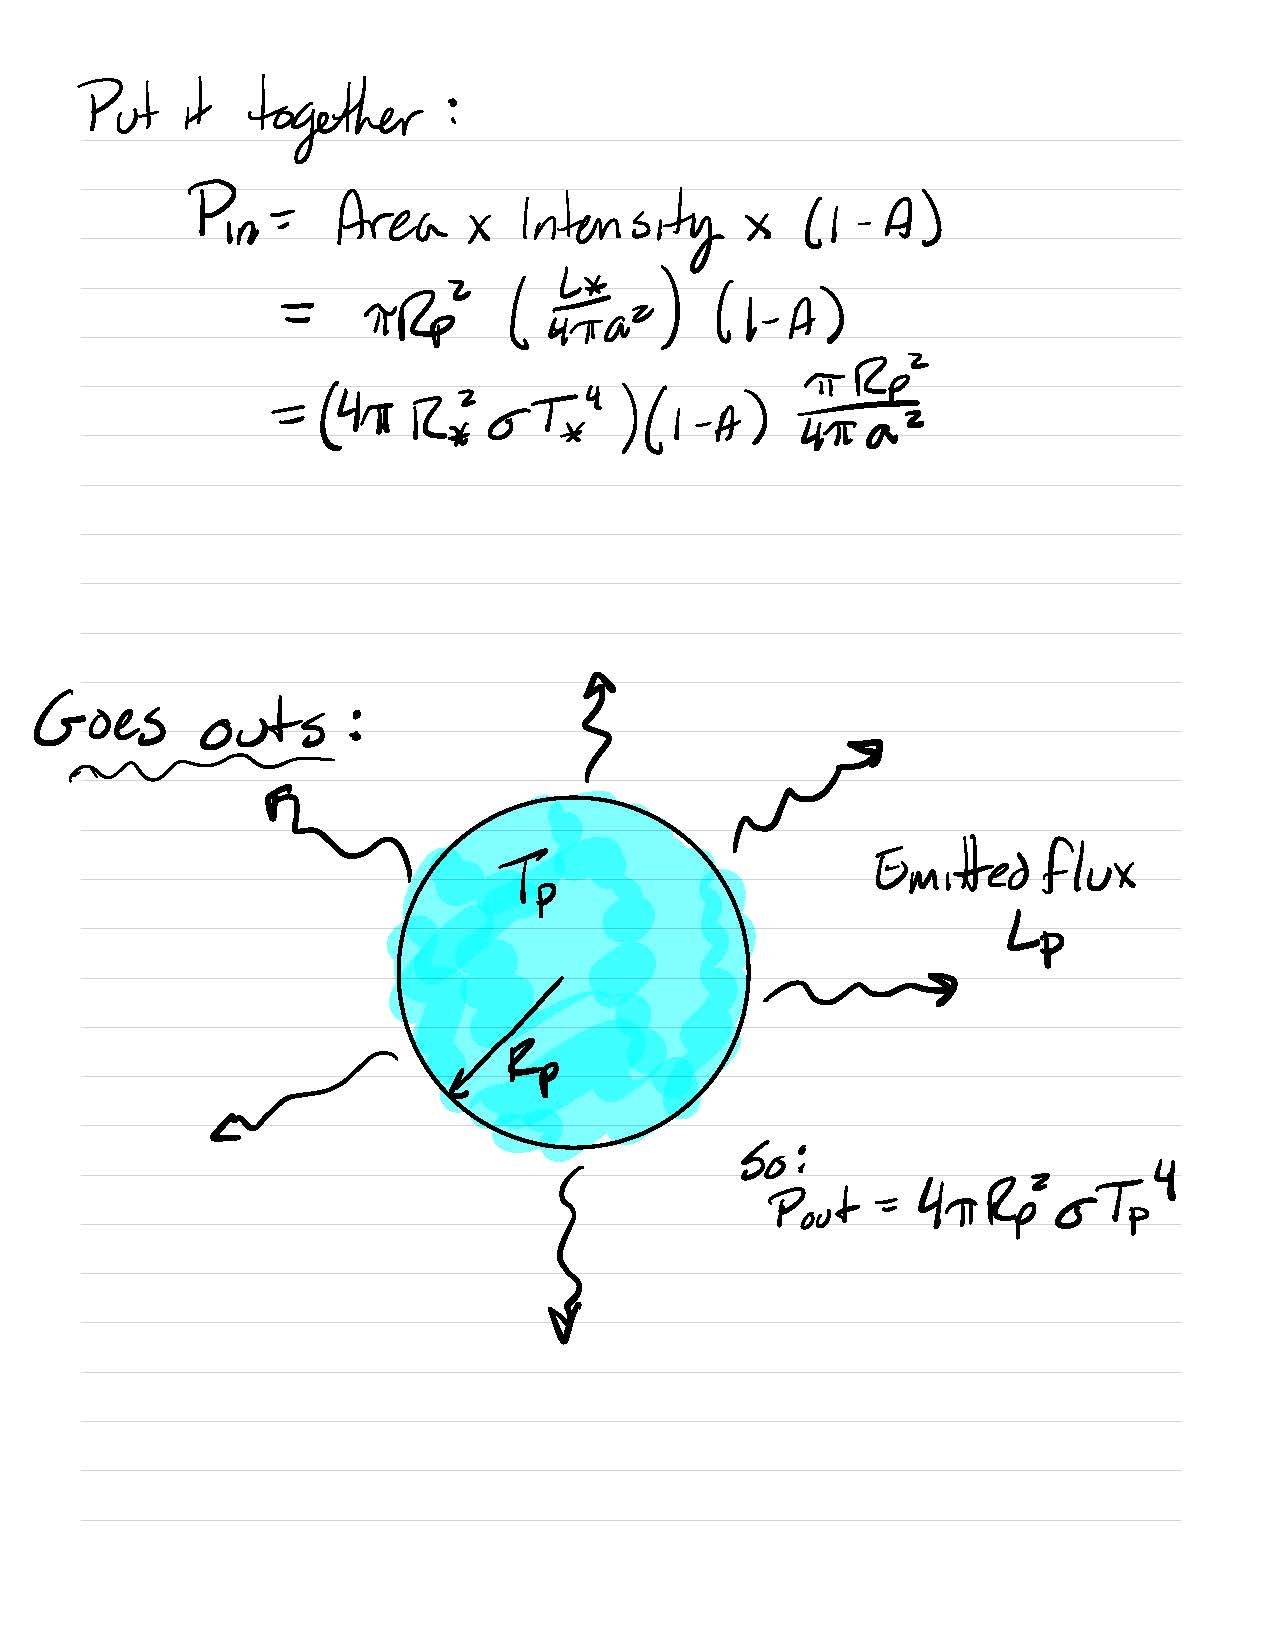 Put it together:
P_in = Area x Intensity x (1-A)
= πR_p² (L_*/4πa²) (1-A)
= (4π R_*² σ T_*⁴)(1-A) πR_p²/4πa²
Goes outs:
T_p
Emitted flux
L_p
R_p
So:
P_out = 4πR_p² σT_p⁴